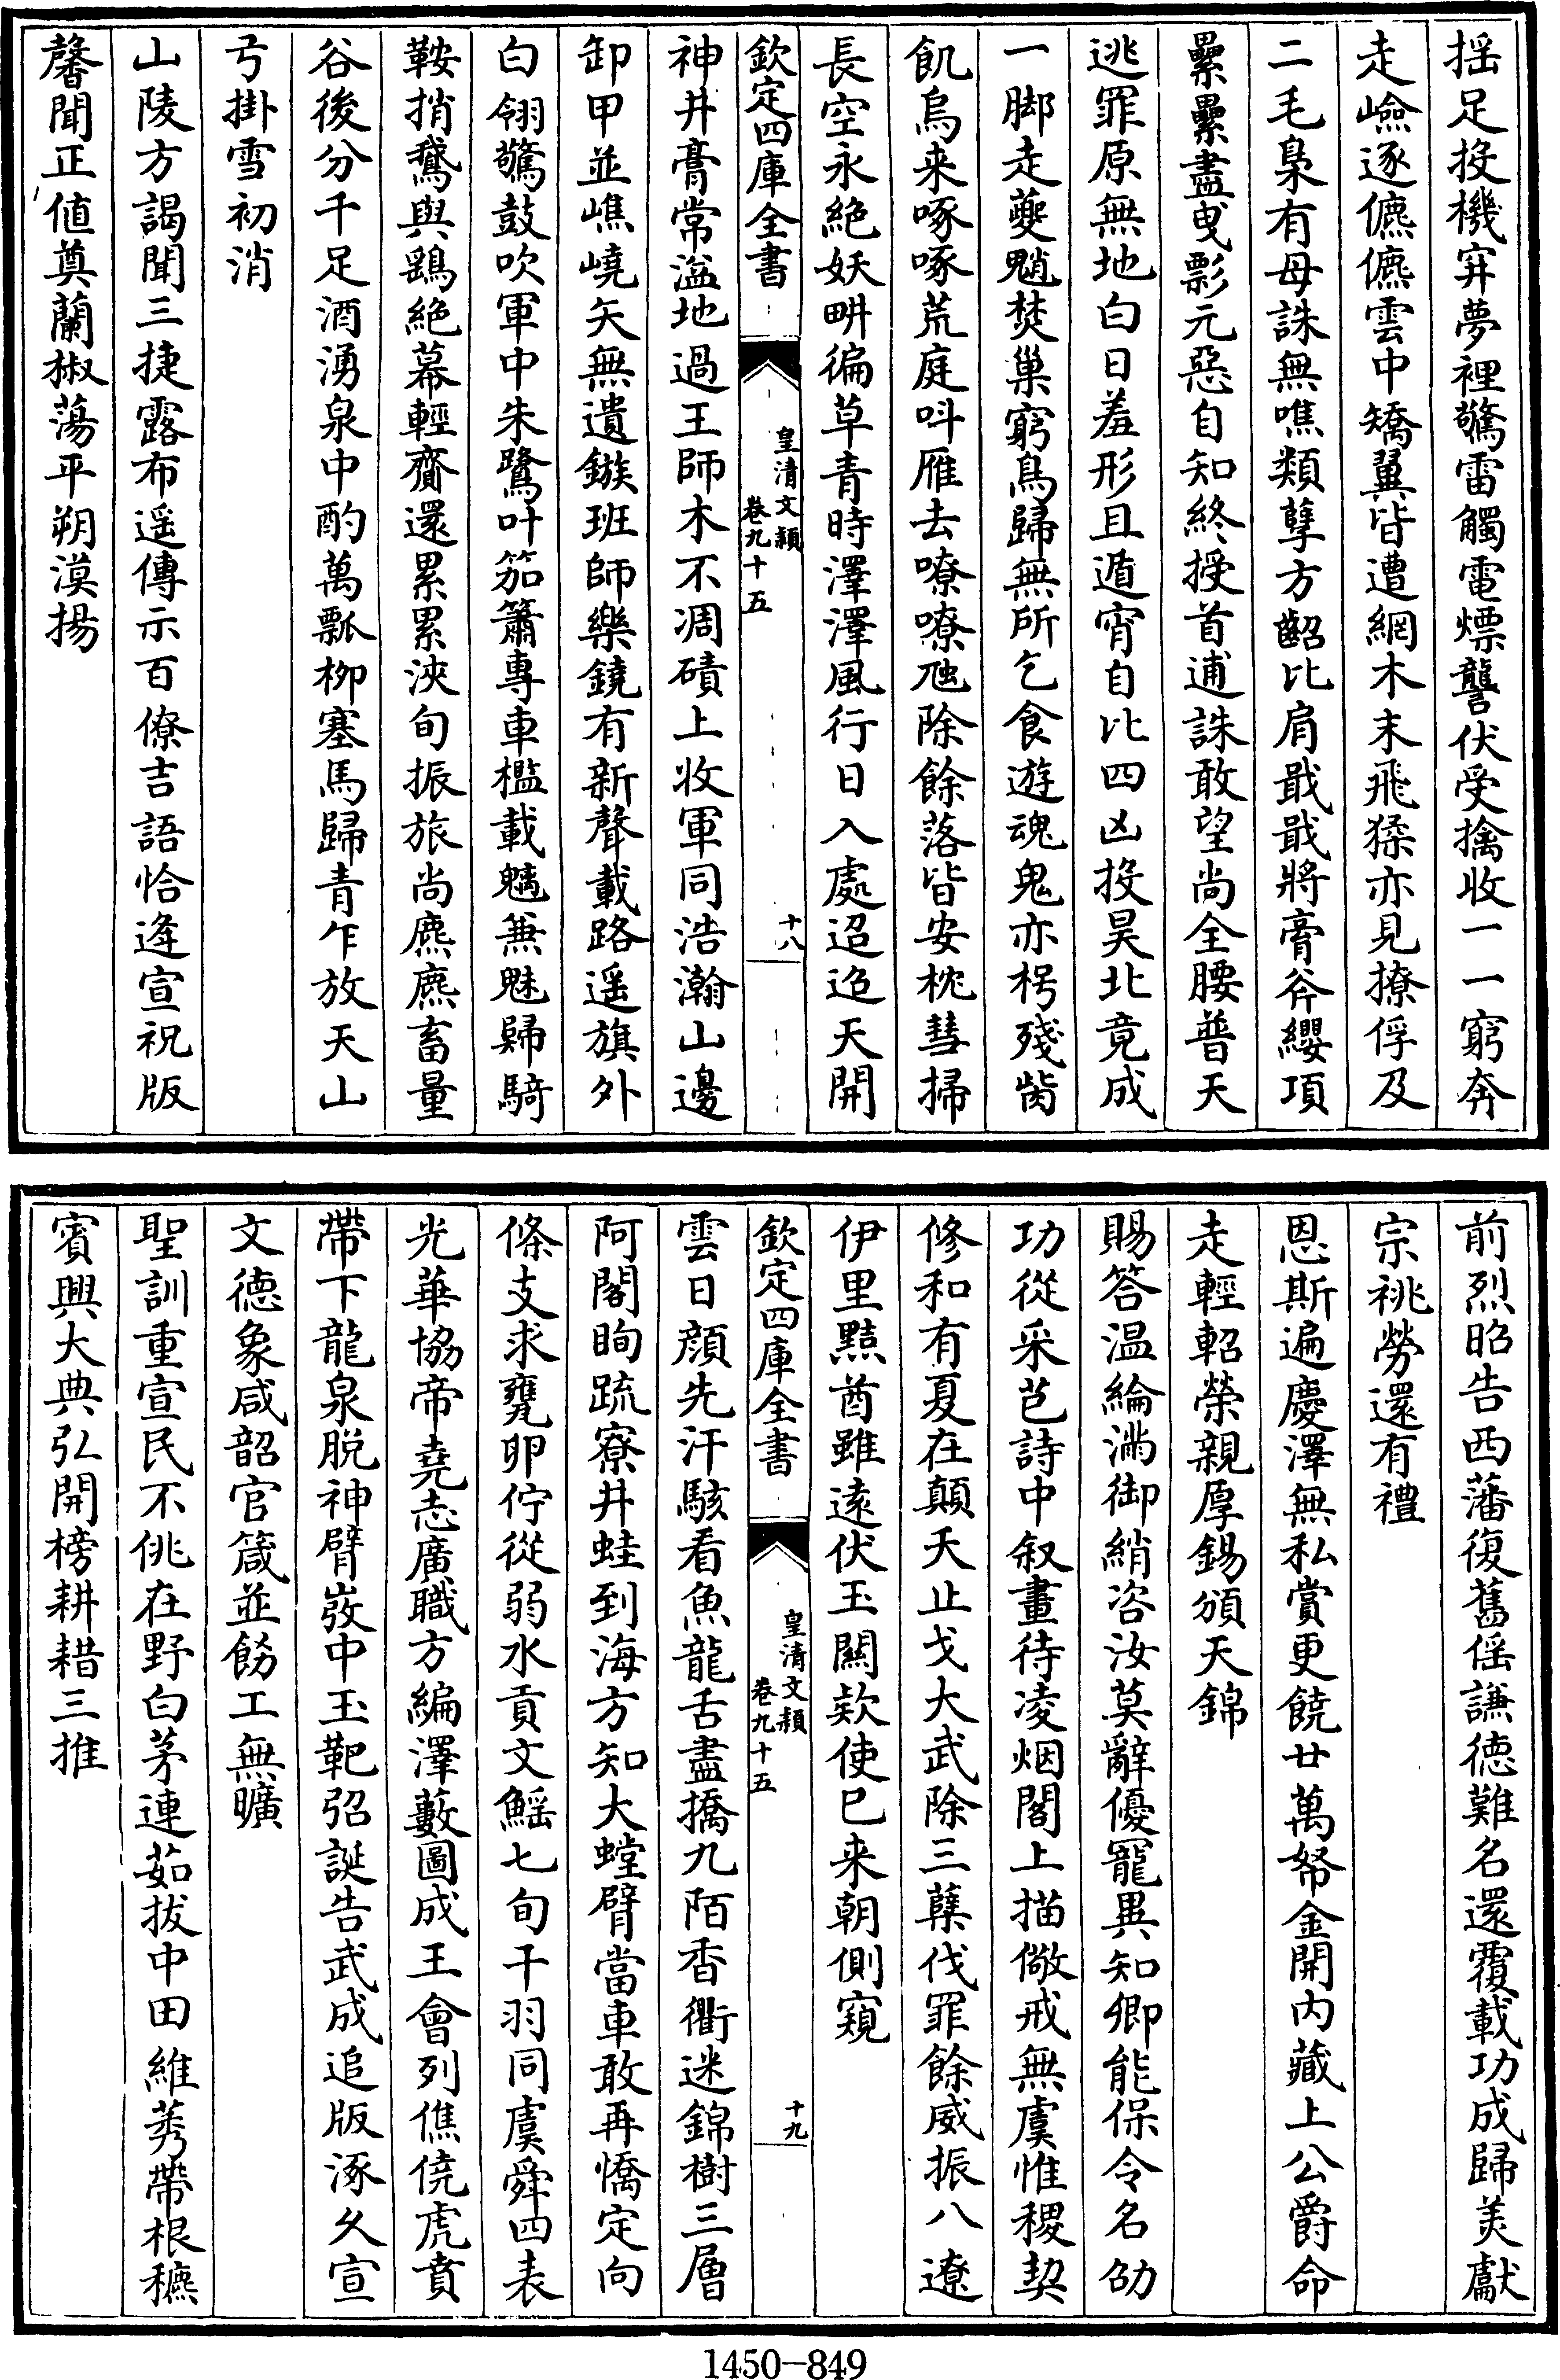 揺足投機穽夢裡驚雷觸電熛讋伏受擒收一一窮奔
走嶮逐儦儦雲中矯翼皆遭網木末飛猱亦見撩俘及
二毛梟有母誅無噍類孽方齠比肩戢戢將膏斧纓項
纍纍盡曳髟元惡自知終授首逋誅敢望尚全腰普天
逃罪原無地白日羞形且遁宵自比四凶投昊北竟成
一脚走夔魈焚巢窮鳥歸無所乞食遊魂鬼亦枵殘齒
飢烏来啄啄荒庭呌雁去嘹嘹虺除餘落皆安枕彗掃
長空永絶妖畊徧草青時澤澤風行日入處迢迢天開
欽定四庫全書
皇清文穎
卷九十五
十八
神井膏常溢地過王師木不凋磧上收軍同浩瀚山邊
卸甲並嶕嶢矢無遺鏃班師樂鐃有新聲載路遥旗外
白翎驚鼓吹軍中朱鷺叶笳簫專車檻載魑兼魅歸騎
鞍捎鵞與鷂絶幕輕齎還累累浹旬振旅尚麃麃畜量
谷後分千足酒湧泉中酌萬瓢柳塞馬歸青乍放天山
弓掛雪初消
山陵方謁聞三捷露布遥傳示百僚吉語恰逄宣祝版
馨聞正值奠蘭椒蕩平朔漠揚
前烈昭告西藩復舊徭謙德難名還覆載功成歸美獻
宗祧勞還有禮
恩斯遍慶澤無私賞更饒廿萬帑金開内藏上公爵命
走輕軺榮親厚錫頒天錦
賜答温綸滿御綃咨汝莫辭優寵異知卿能保令名劭
功從采芑詩中叙畫待凌烟閣上描儆戒無虞惟稷契
修和有夏在顛夭止戈大武除三蘖伐罪餘威振八遼
伊里黠酋雖逺伏玉關欵使已来朝側窺
欽定四庫全書
皇清文穎
卷九十五
十九
雲日顔先汗駭看魚龍舌盡撟九陌香衢迷錦樹三層
阿閣眴疏寮井蛙到海方知大螳臂當車敢再憍定向
條支求甕卵佇從弱水貢文鰩七旬干羽同虞舜四表
光華協帝堯志廣職方編澤藪圖成王會列僬僥虎賁
帶下龍泉脱神臂弢中玉靶弨誕告武成追版涿乆宣
文德象咸韶官箴並飭工無曠
聖訓重宣民不佻在野白茅連茹拔中田維莠帶根穮
賓興大典弘開榜耕耤三推
1450-849